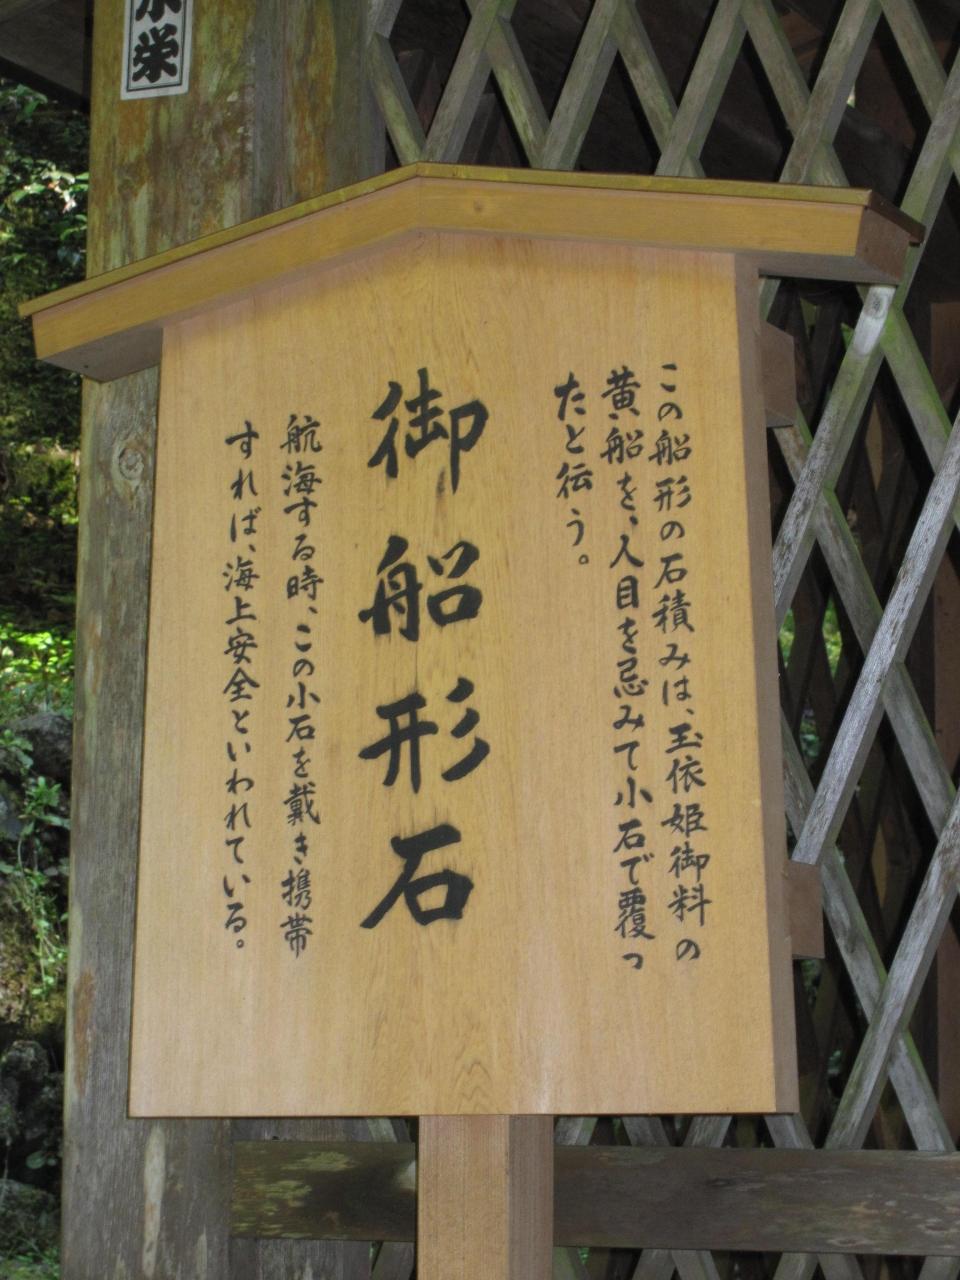 この船形の石積みは、玉依姫御料の
黄船を、人目を忌みて小石で覆っ
たと伝う。
御船形石
航海する時、この小石を戴き携帯
すれば、海上安全といわれている。
栄